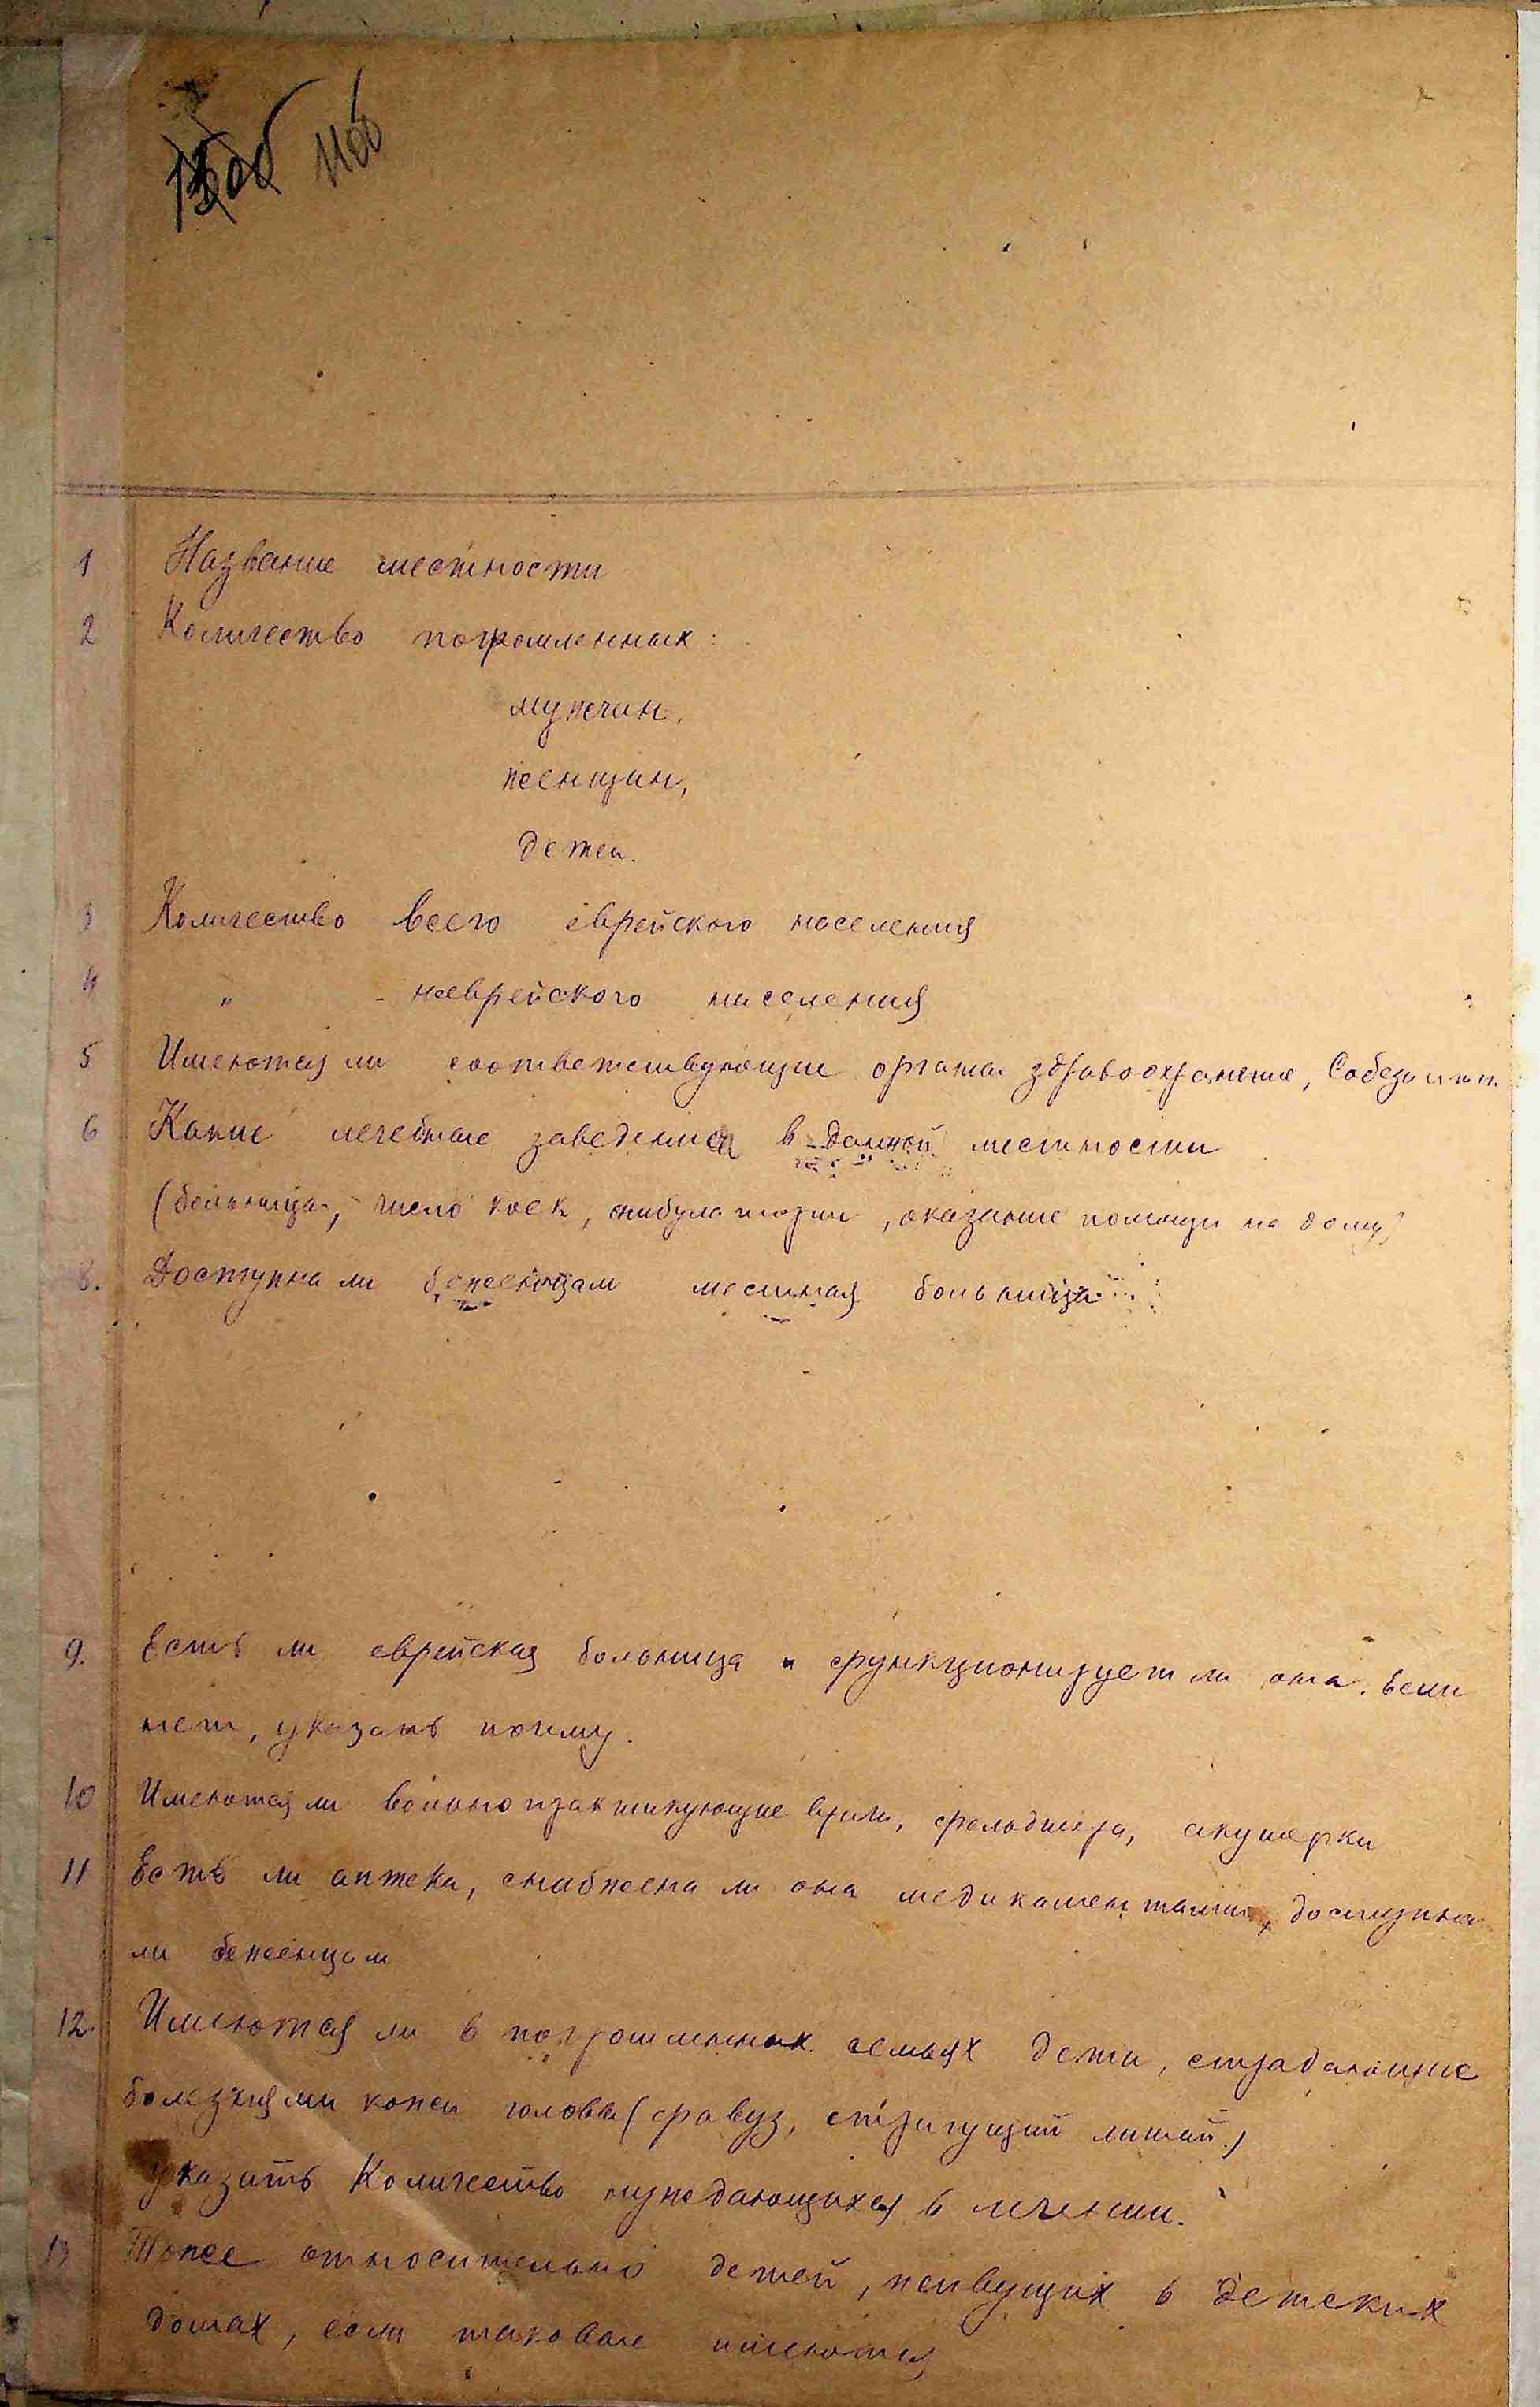 11об
1 Название местности
2 Количество погромленных:
мужчин,
женщин,
детей.
3 Количество всего еврейского населения
4 " - нееврейского населения
5 Имеются ли соответствующие органы здравоохранения, Собеза и т.п.
6 Какие лечебные заведения в данной местности
(больница, число коек, амбулатории, оказание помощи на дому)
8. Доступна ли беженцам местная больница
9. Есть ли еврейская больница и функционирует ли она. Если
нет, указать почему.
10 Имеются ли вольнопрактикующие врачи, фельдшера, акушерки
11 Есть ли аптека, снабжена ли она медикаментами, доступна
ли беженцам
12. Имеются ли в погромленных семьях дети, страдающие
болезнями кожи головы (фавуз, стригущий лишай)
указать Количество нуждающихся в лечении.
13 Тоже относительно детей, живущих в детских
домах, если таковые имеются